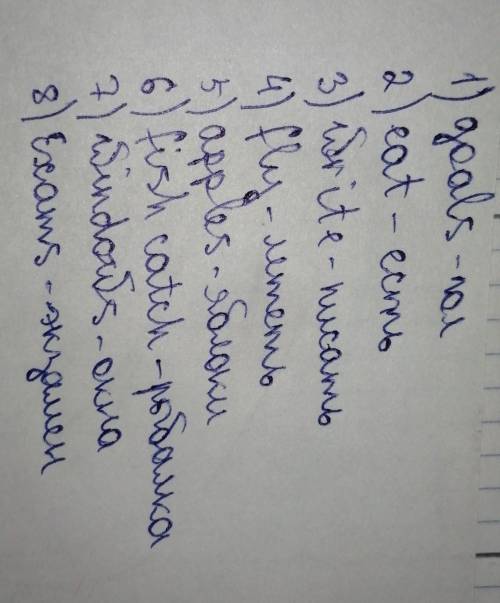 1) goals - гол
2) eat - есть
3) write - писать
4) fly - лететь
5) apples - яблоки
6) fish catch - рыбалка
7) windows - окна
8) Exams - экзамен